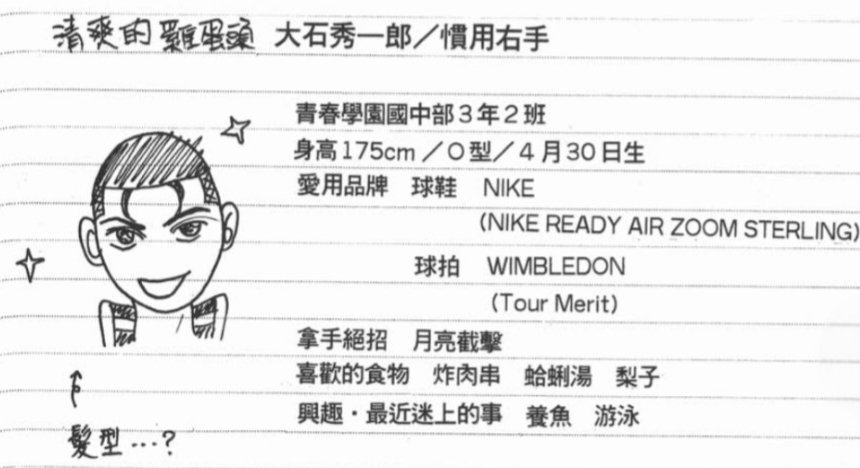 清爽的雞蛋頭 大石秀一郎／慣用右手
青春學園國中部3年2班
身高175cm／O型／4月30日生
愛用品牌 球鞋 NIKE
(NIKE READY AIR ZOOM STERLING)
球拍 WIMBLEDON
(Tour Merit)
拿手絕招 月亮截擊
喜歡的食物 炸肉串 蛤蜊湯 梨子
興趣・最近迷上的事 養魚 游泳
髮型…?